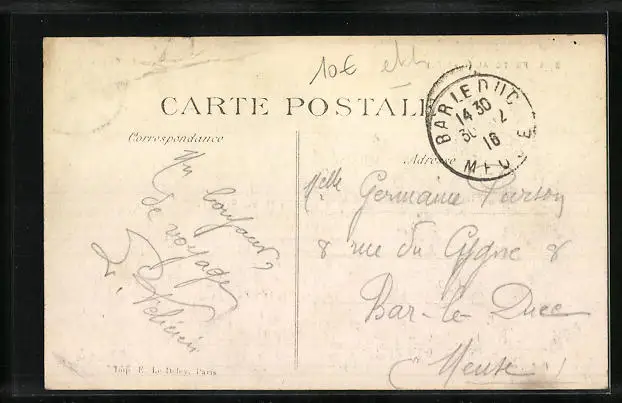 10€
CARTE POSTALE
BAR LE DUC
14 30
30
16
MEUSE
Correspondance
Adresse
Un bonjour
de voyage
Melle Germaine
8 rue du Cygne 8
Bar-le-Duc
(Meuse)
Imp. E. Le Deley, Paris